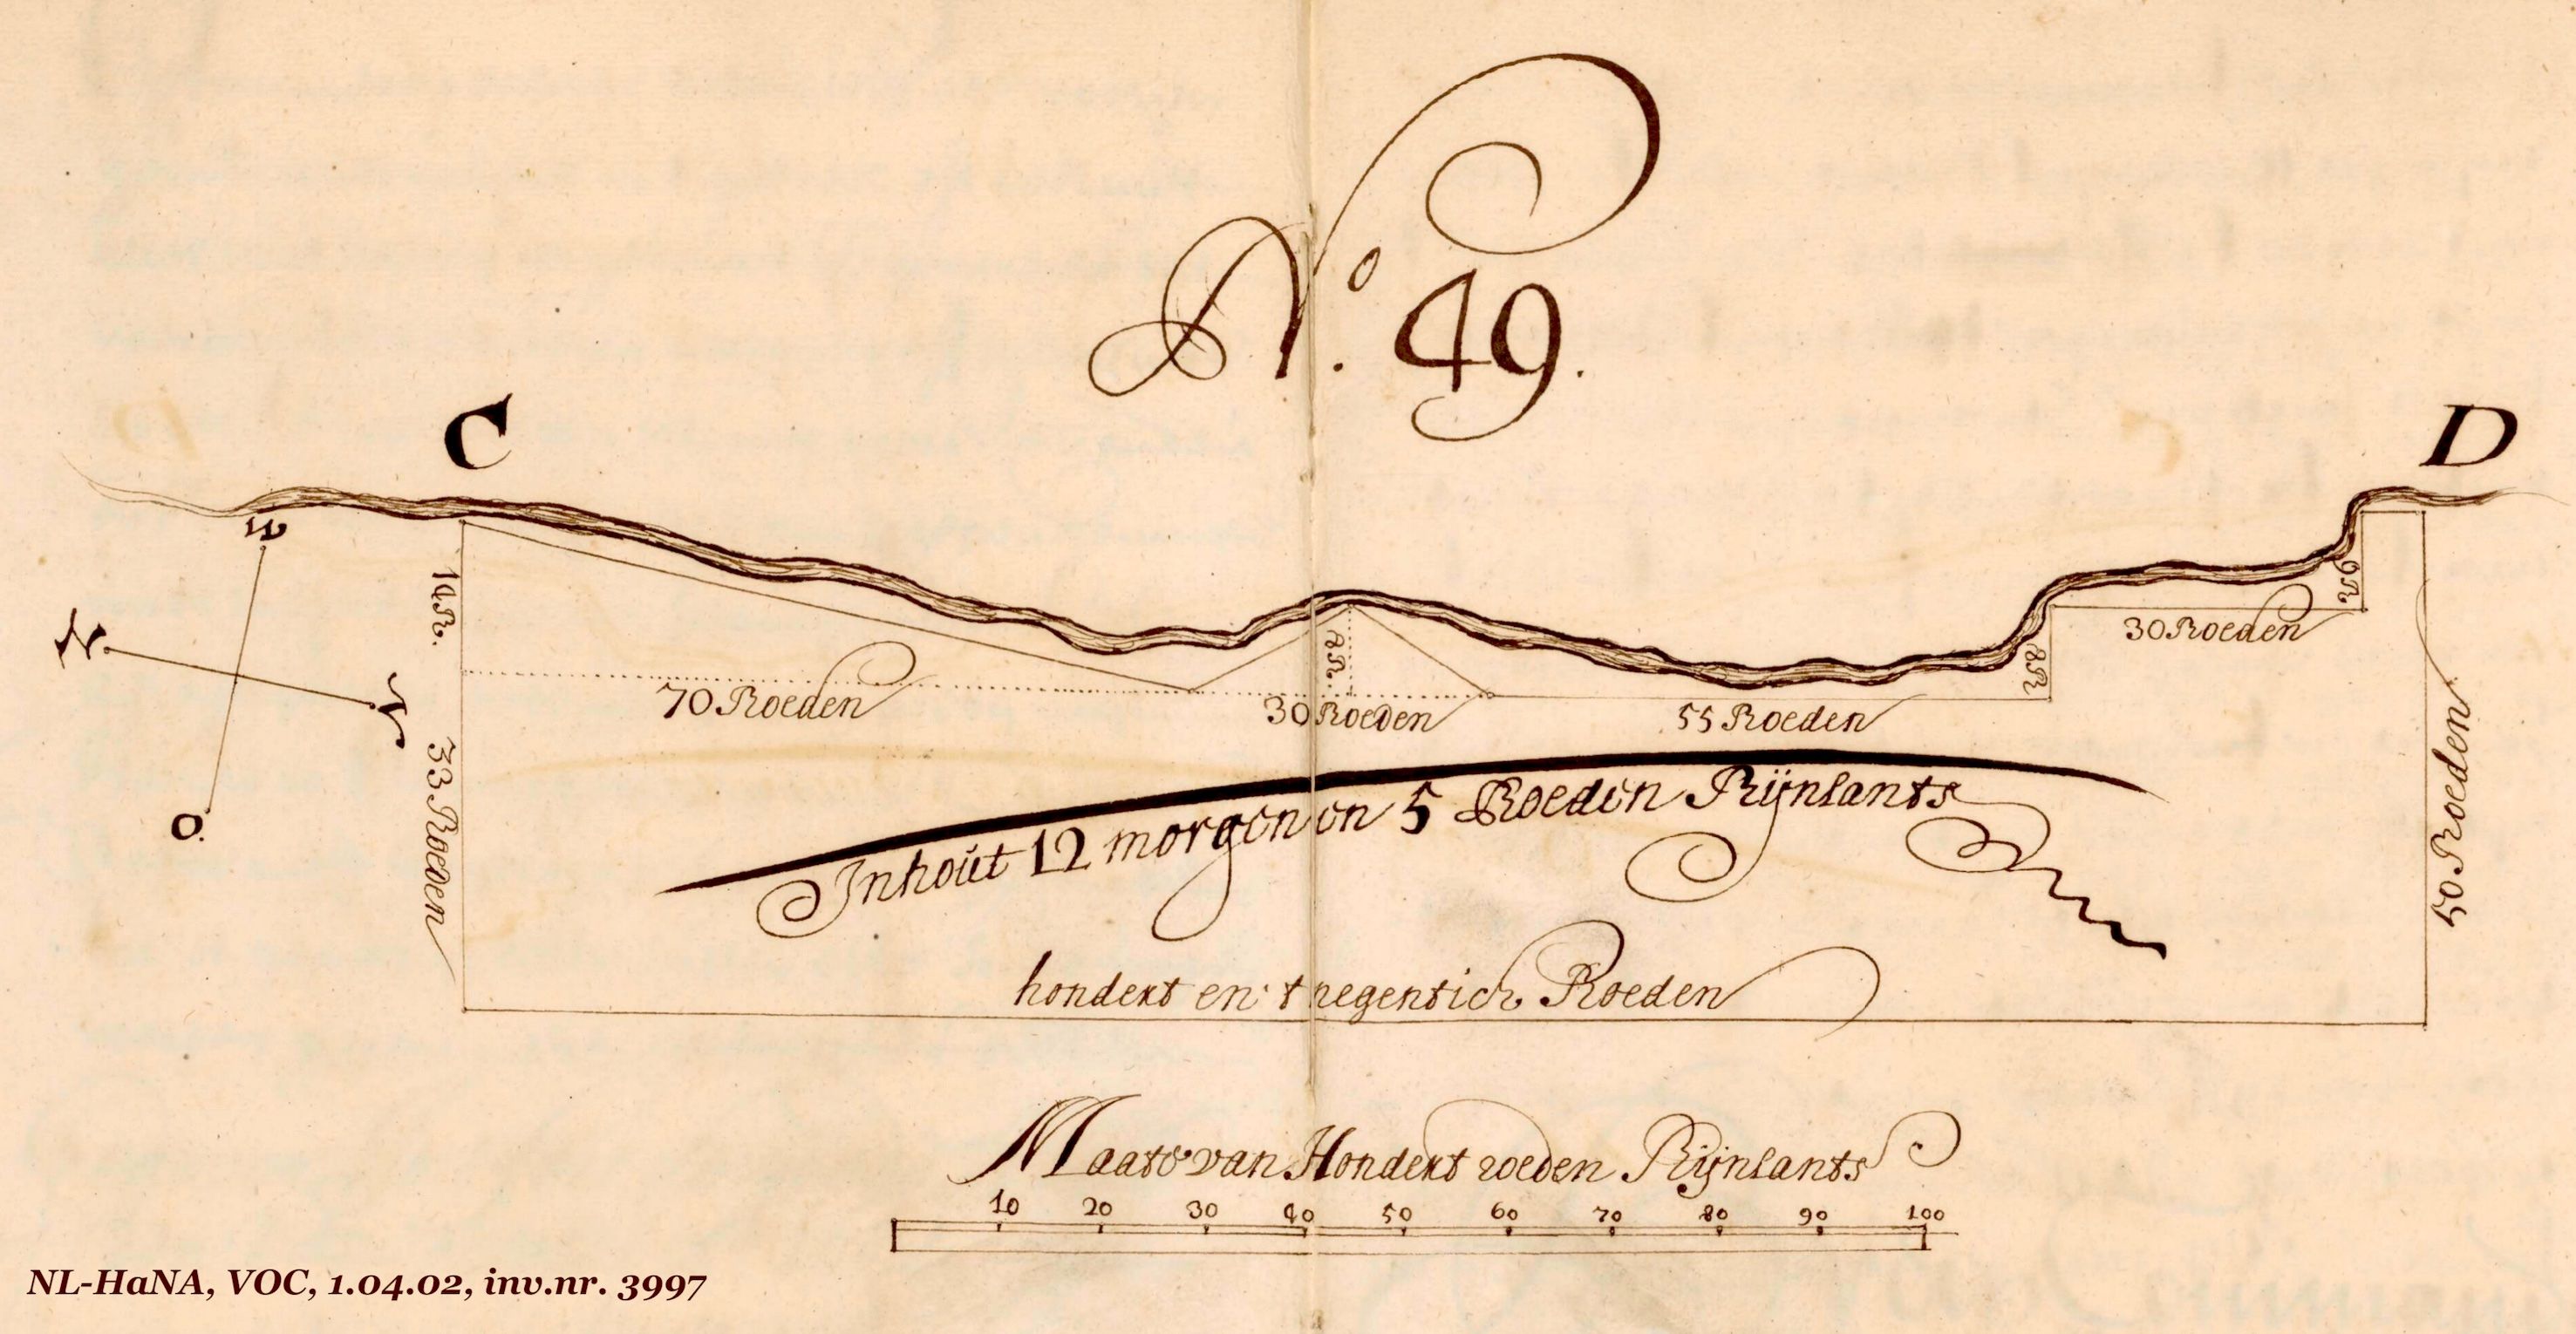 No. 49.
C
D
W
N.
Z
O.
14R.
33 Roeden
70 Roeden
8R.
30 Roeden
55 Roeden
8R
30 Roeden
9R
50 Roeden
Inhout 12 morgen en 5 Roeden Rijnlants
hondert en t negentich Roeden
Maate van Hondert roeden Rijnlants
10 20 30 40 50 60 70 80 90 100
NL-HaNA, VOC, 1.04.02, inv.nr. 3997